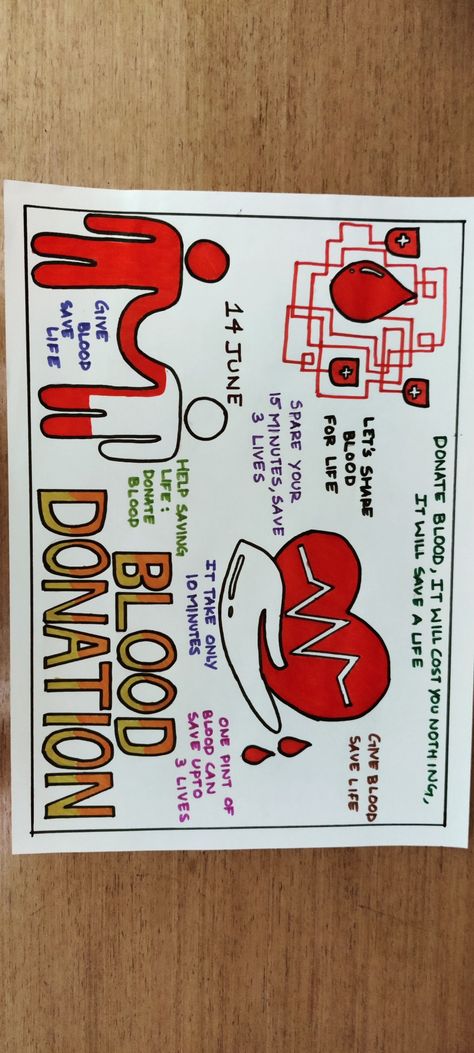 DONATE BLOOD, IT WILL COST YOU NOTHING,
IT WILL SAVE A LIFE
LET'S SHARE
BLOOD
FOR LIFE
GINE BLOOD
SAVE LIFE
SPARE YOUR
15 MINUTES, SAVE
3 LIVES
14 JUNE
IT TAKE ONLY
10 MINUTES
ONE PINT OF
BLOOD CAN
SAVE UPTO
3 LIVES
HELP SAVING
LIFE:
DONATE
BLOOD
GIVE
BLOOD
SAVE
LIFE
BLOOD
DONATION